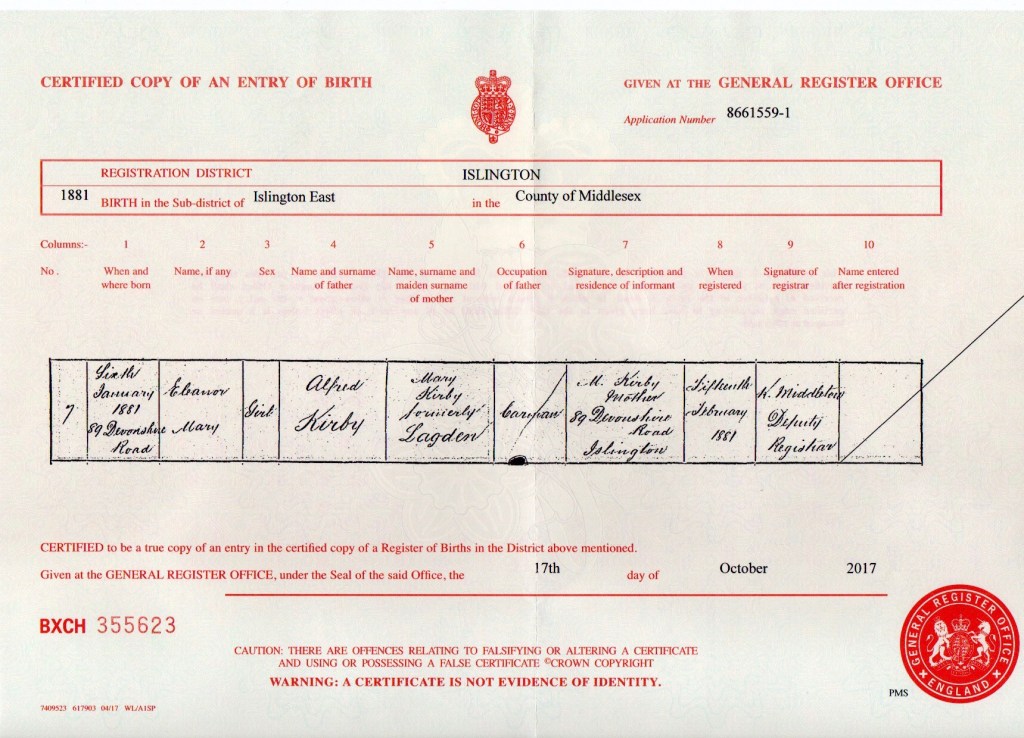 CERTIFIED COPY OF AN ENTRY OF BIRTH
GIVEN AT THE GENERAL REGISTER OFFICE
Application Number 8661559-1
REGISTRATION DISTRICT ISLINGTON
1881 BIRTH in the Sub-district of Islington East in the County of Middlesex
Columns:- 1 2 3 4 5 6 7 8 9 10
No. When and where born Name, if any Sex Name and surname of father Name, surname and maiden surname of mother Occupation of father Signature, description and residence of informant When registered Signature of registrar Name entered after registration
7
Sixth
January
1881
89 Devonshire
Road
Eleanor
Mary
Girl
Alfred
Kirby
Mary
Kirby
formerly
Lagden
Carman
M. Kirby
Mother
89 Devonshire
Road
Islington
Fifteenth
February
1881
K. Middleton
Deputy
Registrar
CERTIFIED to be a true copy of an entry in the certified copy of a Register of Births in the District above mentioned.
Given at the GENERAL REGISTER OFFICE, under the Seal of the said Office, the 17th day of October 2017
BXCH 355623
CAUTION: THERE ARE OFFENCES RELATING TO FALSIFYING OR ALTERING A CERTIFICATE
AND USING OR POSSESSING A FALSE CERTIFICATE ©CROWN COPYRIGHT
WARNING: A CERTIFICATE IS NOT EVIDENCE OF IDENTITY.
GENERAL REGISTER OFFICE
ENGLAND
PMS
7409523 617903 04/17 WL/A1SP